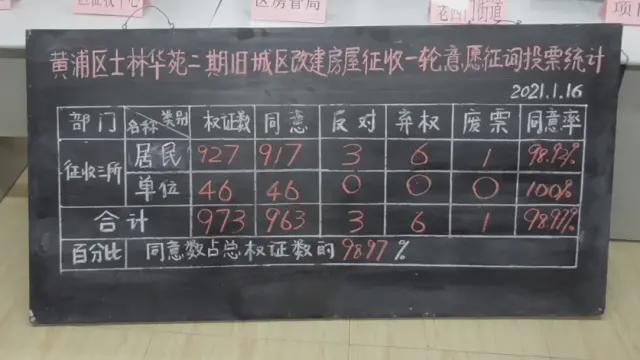 区征收中心
区房管局
老西门街道
项目
黄浦区士林华苑二期旧城区改建房屋征收一轮意愿征询投票统计
2021.1.16
部门 名称 类别 权证数 同意 反对 弃权 废票 同意率
征收三所 居民 927 917 3 6 1 98.92%
单位 46 46 0 0 0 100%
合计 973 963 3 6 1 98.97%
百分比 同意数占总权证数的 98.97 %